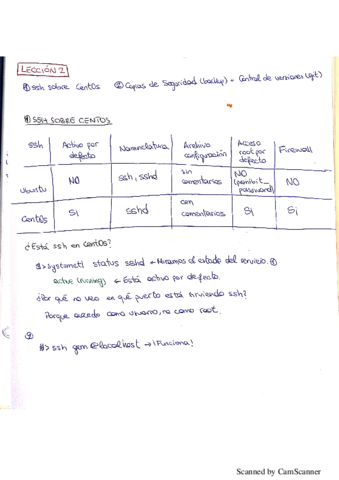 LECCIÓN 2
① ssh sobre CentOS ② Copias de Seguridad (backup) + Control de versiones (git)
① SSH SOBRE CENTOS
ssh | Activo por defecto | Nomenclatura | Archivo configuración | Acceso root por defecto | Firewall
Ubuntu | NO | ssh, sshd | sin comentarios | NO (permit password) | NO
CentOS | Sí | sshd | con comentarios | Sí | Sí
¿Está ssh en CentOS?
$> systemctl status sshd ← Miramos el estado del servicio.
active (running) ← Está activo por defecto.
¿Por qué no veo en qué puerto está sirviendo ssh?
Porque accedo como usuario, no como root.
②
$> ssh @localhost → ¡Funciona!
Scanned by CamScanner